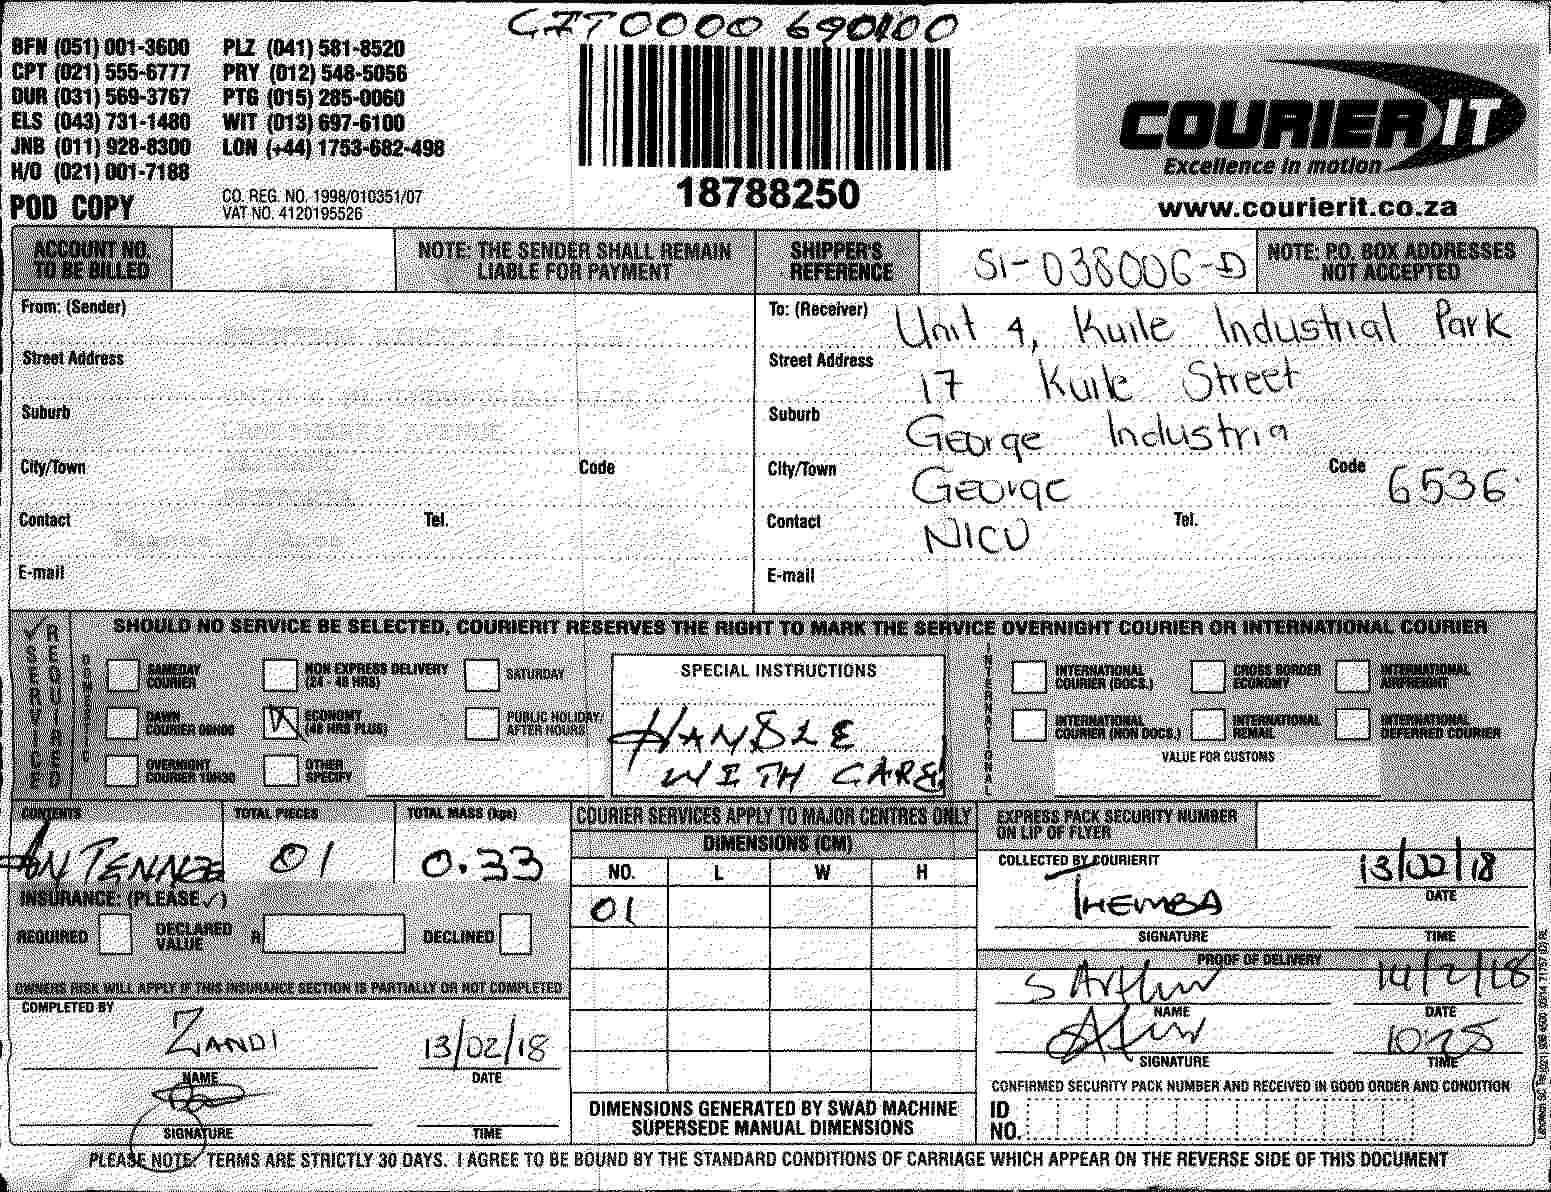 CIT0000 690100
BFN (051) 001-3600 PLZ (041) 581-8520
CPT (021) 555-6777 PRY (012) 548-5056
DUR (031) 569-3767 PTG (015) 285-0060
ELS (043) 731-1480 WIT (013) 697-6100
JNB (011) 928-8300 LON (+44) 1753-682-498
H/O (021) 001-7188
POD COPY
CO. REG. NO. 1998/010351/07
VAT NO. 4120195526
18788250
COURIER IT
Excellence in motion
www.courierit.co.za
ACCOUNT NO. TO BE BILLED
NOTE: THE SENDER SHALL REMAIN LIABLE FOR PAYMENT
SHIPPER'S REFERENCE SI-038006-D
NOTE: P.O. BOX ADDRESSES NOT ACCEPTED
From: (Sender)
Street Address
Suburb
City/Town Code
Contact Tel.
E-mail
To: (Receiver) Unit 4, Kuile Industrial Park
Street Address 17 Kuile Street
Suburb George Industria
City/Town George Code 6536
Contact NICU Tel.
E-mail
SERVICE REQUIRED
SHOULD NO SERVICE BE SELECTED, COURIERIT RESERVES THE RIGHT TO MARK THE SERVICE OVERNIGHT COURIER OR INTERNATIONAL COURIER
DOMESTIC
SAMEDAY COURIER
NON EXPRESS DELIVERY (24 - 48 HRS)
SATURDAY
DAWN COURIER 09H00
ECONOMY (48 HRS PLUS)
PUBLIC HOLIDAY/ AFTER HOURS
OVERNIGHT COURIER 10H30
OTHER SPECIFY
SPECIAL INSTRUCTIONS
HANDLE
WITH CARE
INTERNATIONAL
INTERNATIONAL COURIER (DOCS.)
CROSS BORDER ECONOMY
INTERNATIONAL AIRFREIGHT
INTERNATIONAL COURIER (NON DOCS.)
INTERNATIONAL REMAIL
INTERNATIONAL DEFERRED COURIER
VALUE FOR CUSTOMS
CONTENTS TOTAL PIECES TOTAL MASS (kgs)
ANTENNAE 01 0.33
INSURANCE: (PLEASE ✓)
REQUIRED DECLARED VALUE R DECLINED
OWNERS RISK WILL APPLY IF THIS INSURANCE SECTION IS PARTIALLY OR NOT COMPLETED
COMPLETED BY
ZANDI 13/02/18
NAME DATE
SIGNATURE TIME
COURIER SERVICES APPLY TO MAJOR CENTRES ONLY
DIMENSIONS (CM)
NO. L W H
01
DIMENSIONS GENERATED BY SWAD MACHINE
SUPERSEDE MANUAL DIMENSIONS
EXPRESS PACK SECURITY NUMBER ON LIP OF FLYER
COLLECTED BY COURIERIT
THEMBA 13/02/18
DATE
SIGNATURE TIME
PROOF OF DELIVERY
S Arthur 14/2/18
NAME DATE
SIGNATURE TIME
CONFIRMED SECURITY PACK NUMBER AND RECEIVED IN GOOD ORDER AND CONDITION
ID NO.
PLEASE NOTE: TERMS ARE STRICTLY 30 DAYS. I AGREE TO BE BOUND BY THE STANDARD CONDITIONS OF CARRIAGE WHICH APPEAR ON THE REVERSE SIDE OF THIS DOCUMENT